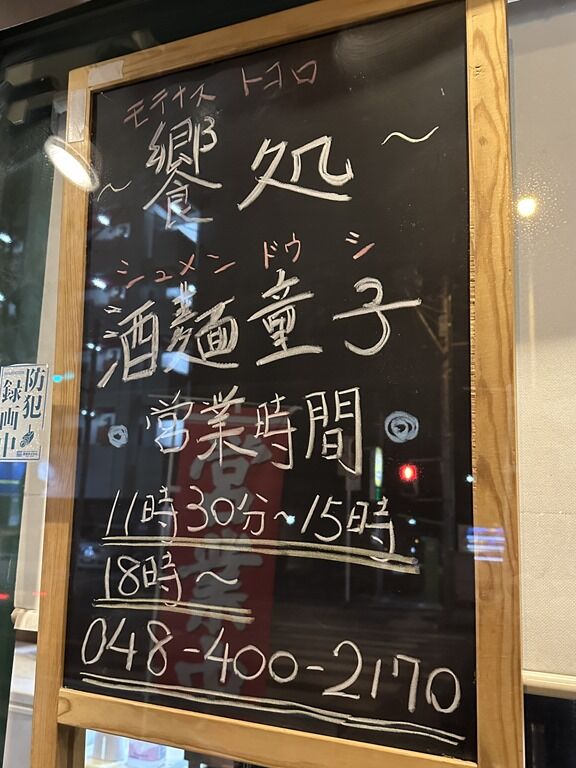 モテナス トコロ
～ 饗 処 ～
シュメン ドウ シ
酒麺童子
営業時間
11時30分～15時
18時～
048-400-2170
防犯
録画中
営業中